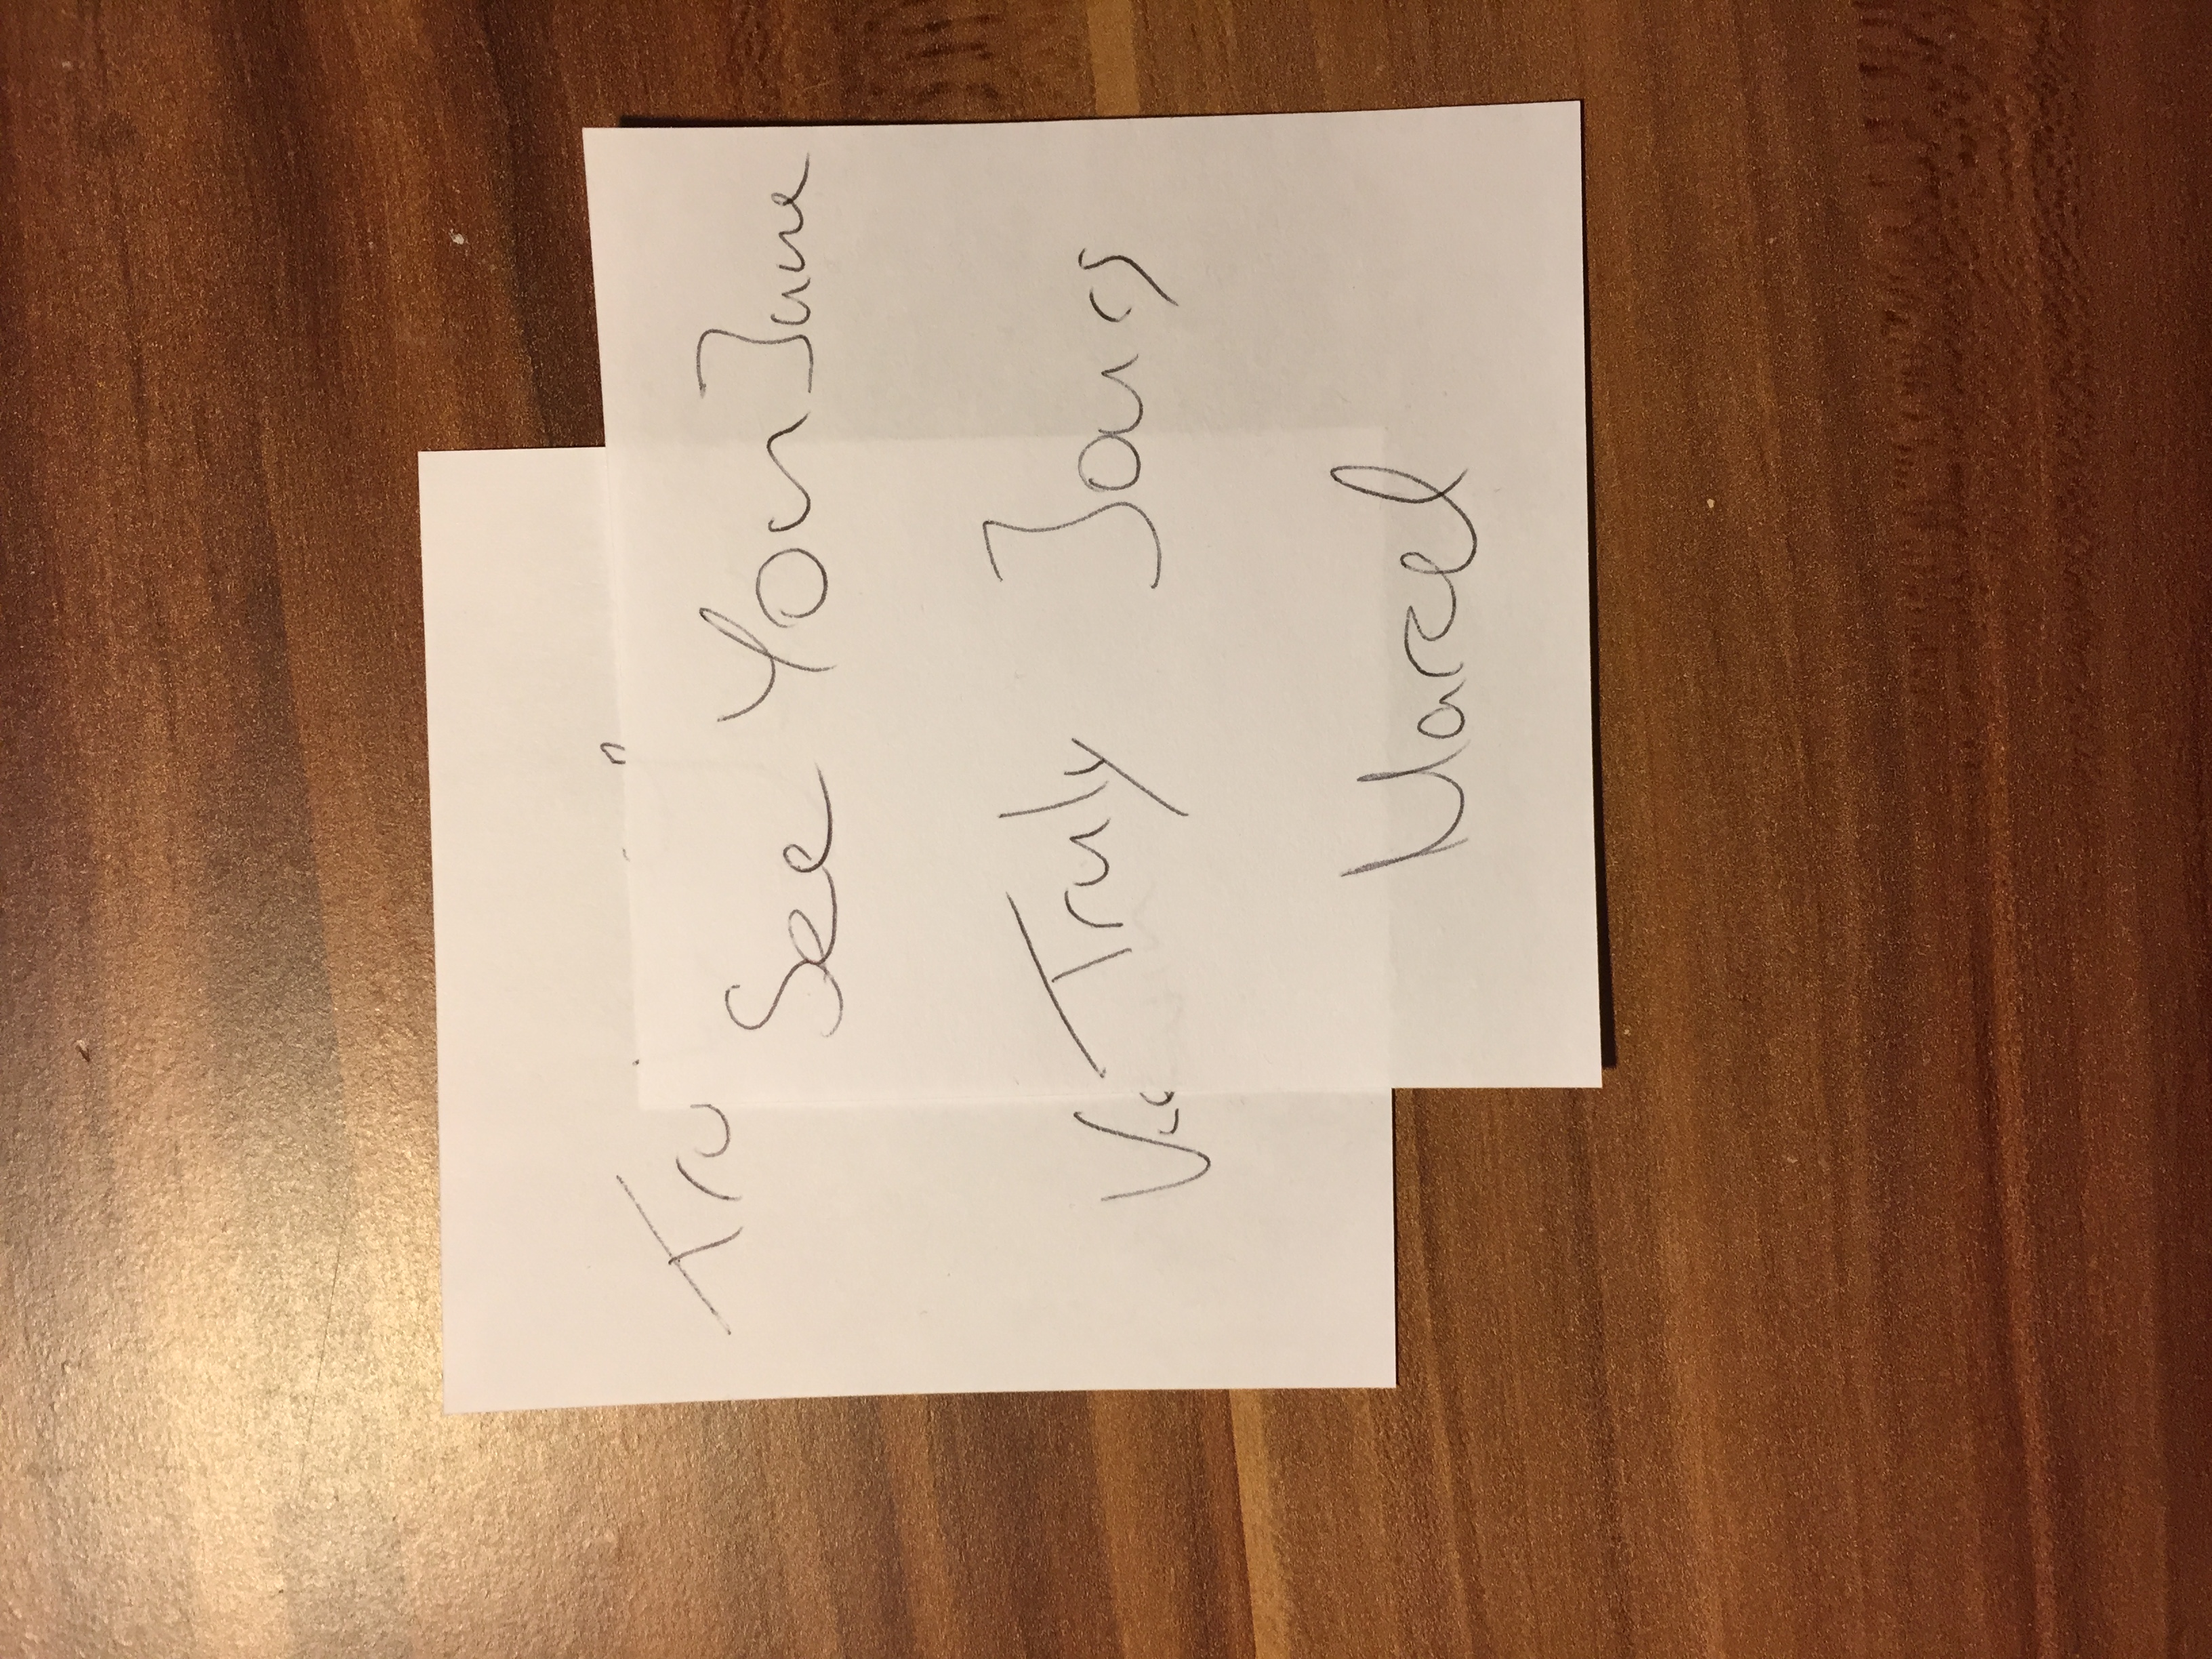 See You June
Truly Jours
Marcel